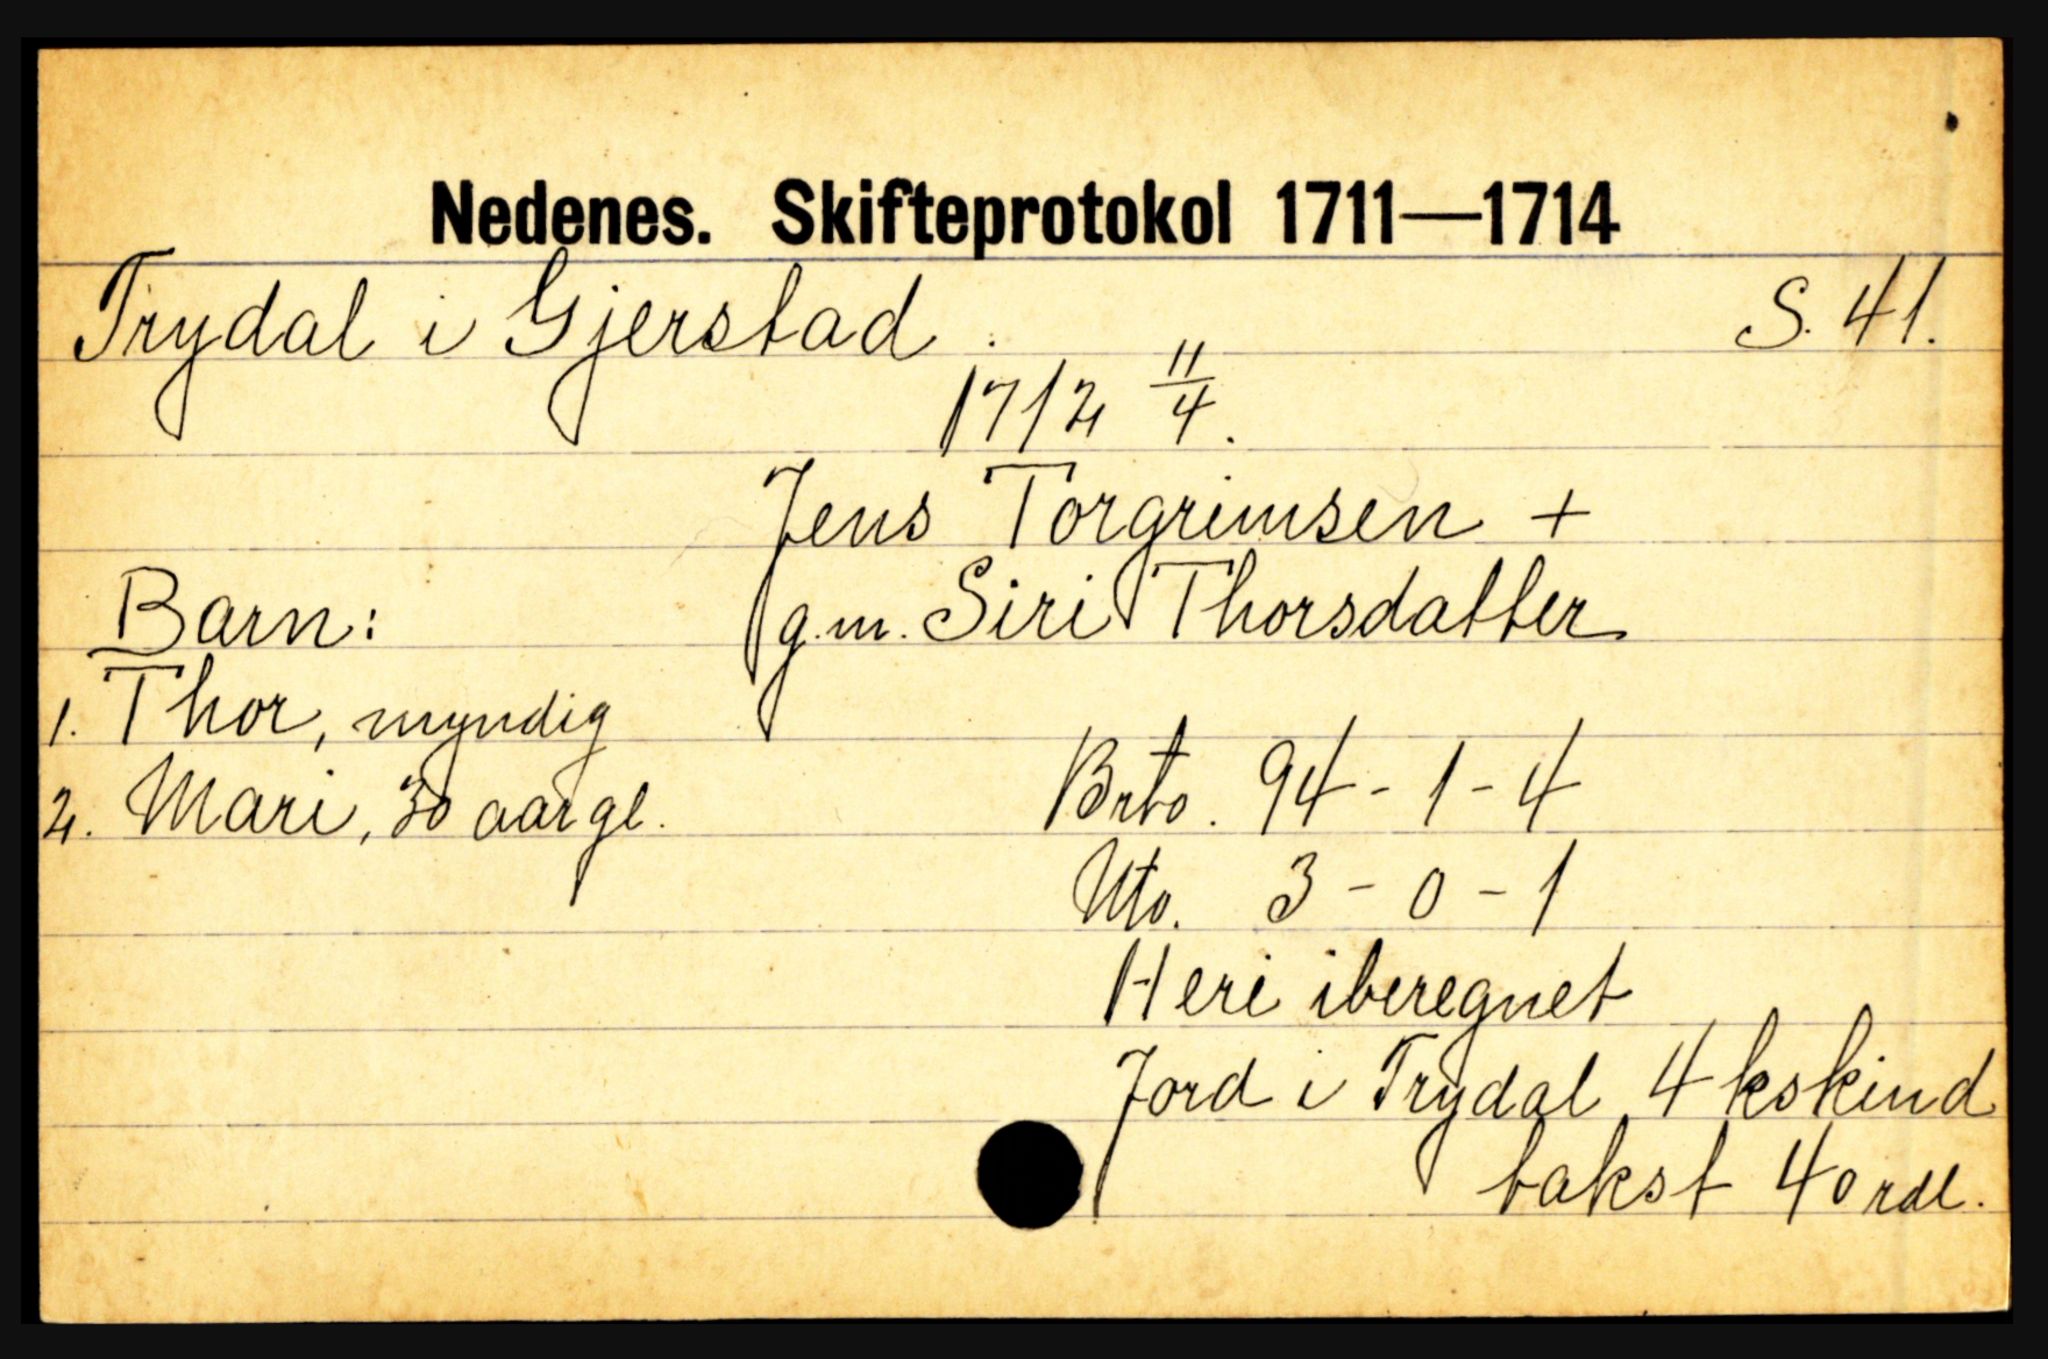 Nedenes. Skifteprotokol 1711—1714
Trydal i Gjerstad. S. 41.
1712 11/4.
Jens Torgrimsen +
g.m. Siri Thorsdatter
Barn:
1. Thor, myndig
2. Mari, 30 aar gl.
Brto. 94 - 1 - 4
Nto. 3 - 0 - 1
Heri iberegnet
Jord i Trydal 4 kskind
takst 40 rdl.